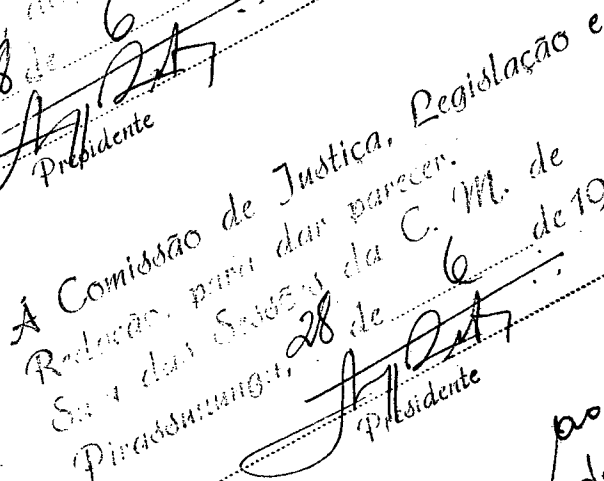 8 de 6
Presidente
Á Comissão de Justiça, Legislação e
Redação, para dar parecer.
Sala das Sessões da C. M. de
Pirassununga, 28 de 6 de 19
Presidente
ao